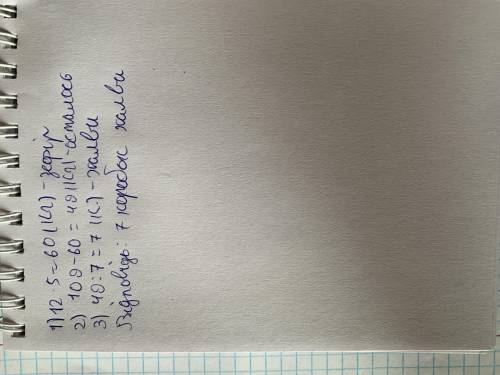 1) 12 · 5 = 60 (кг) - зефір
2) 109 - 60 = 49 (кг) - осталось
3) 49 : 7 = 7 (к.) - халви
Відповідь: 7 коробок халви